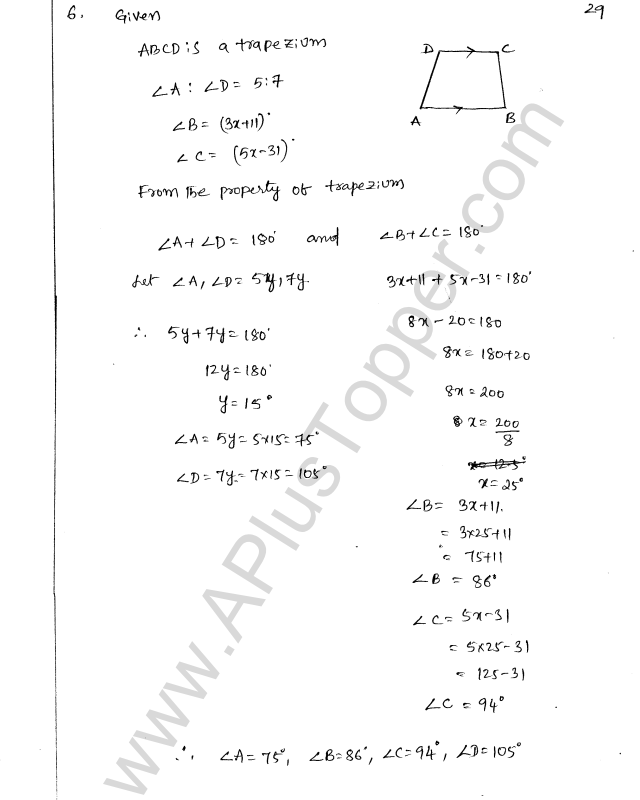 6. Given 29
ABCD is a trapezium
∠A : ∠D = 5:7
∠B = (3x+11)°
∠C = (5x-31)°
D C
A B
From the property of trapezium
∠A + ∠D = 180° and ∠B + ∠C = 180°
Let ∠A, ∠D = 5y, 7y.
3x+11 + 5x-31 = 180°
∴ 5y + 7y = 180°
8x - 20 = 180
12y = 180°
8x = 180+20
y = 15°
8x = 200
∠A = 5y = 5×15 = 75°
x = 200/8
∠D = 7y = 7×15 = 105°
x = 25°
∠B = 3x+11.
= 3×25+11
= 75+11
∠B = 86°
∠C = 5x-31
= 5×25-31
= 125-31
∠C = 94°
∴ ∠A = 75°, ∠B = 86°, ∠C = 94°, ∠D = 105°
www.APlusTopper.com